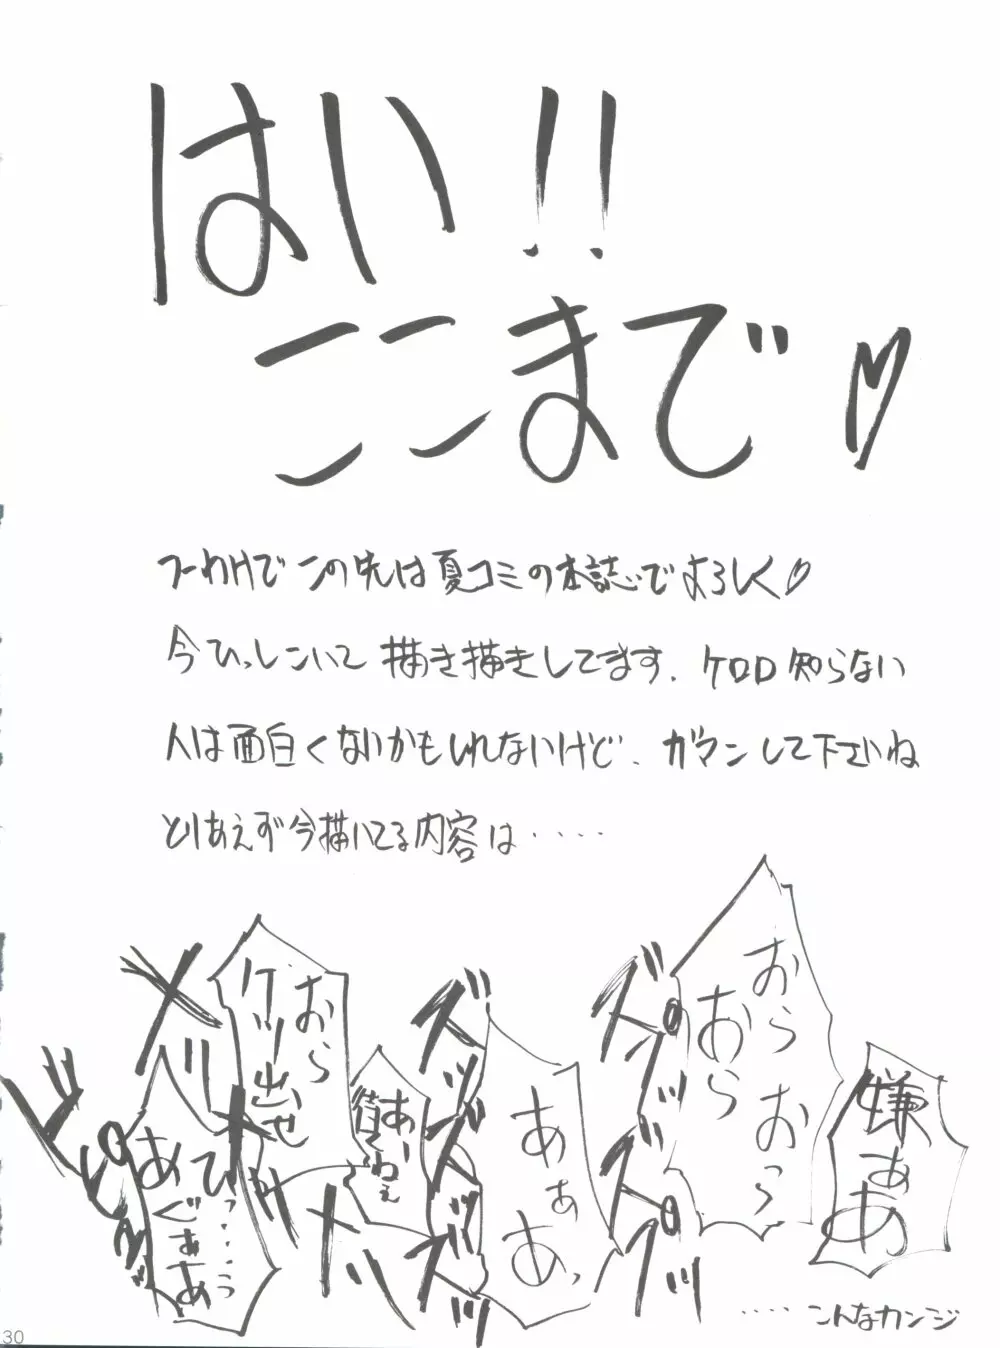 はい!!
ここまで♡
つーわけでこの先は夏コミの本誌でよろしく♡
今ひっしこいて描き描きしてます、ケロロ知らない
人は面白くないかもしれないけど、ガマンして下さいね
とりあえず今描いてる内容は・・・・・
嫌ぁあ
おらおっ
おら
ズプッ
ズプッ
あぁあっ
あー
おら
ケツ出せ
ひっ・・・・うっ
あぐぁあ
・・・・こんなカンジ
30